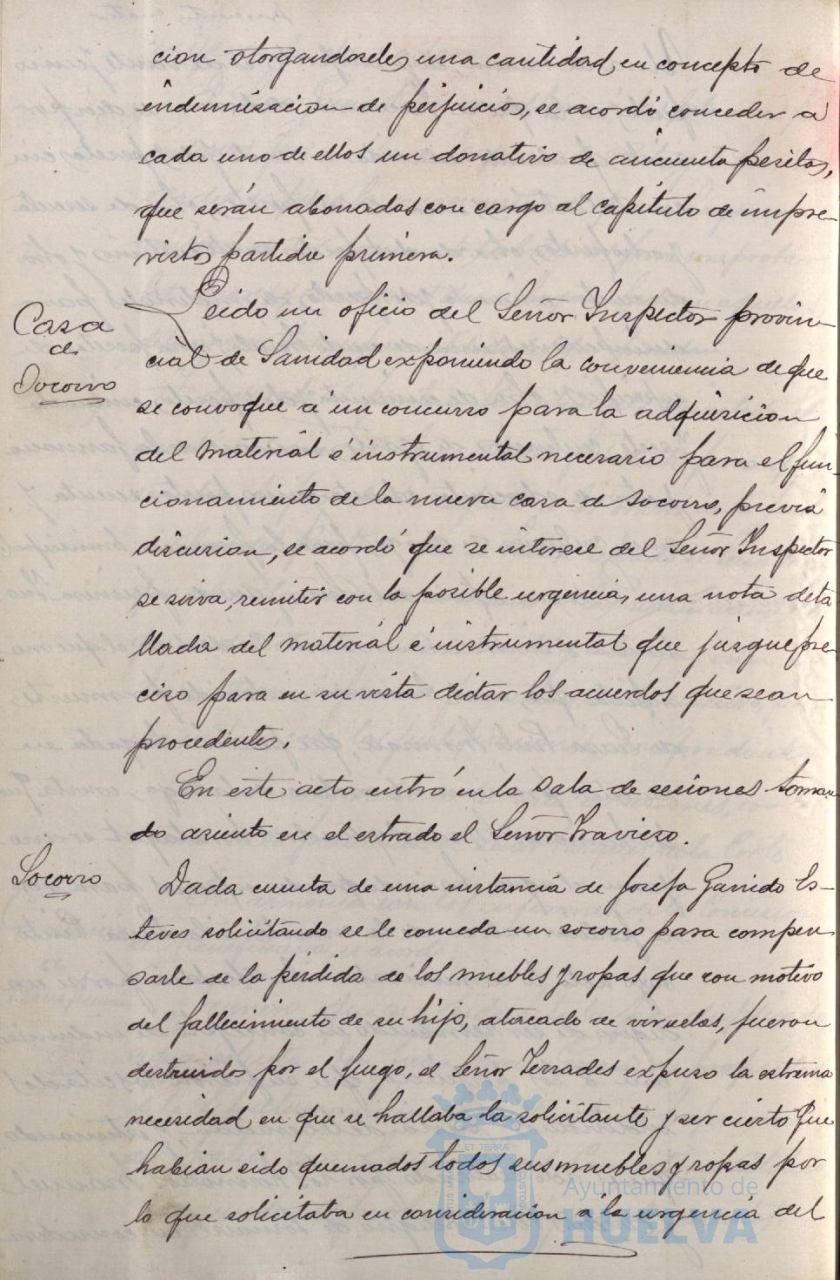 cion otorgandoseles una cantidad en concepto de
indemnisacion de perjuicios, se acordó conceder a
cada uno de ellos un donativo de cincuenta pesetas,
que serán abonadas con cargo al capítulo de impre-
vistos partida primera.
Casa
de
Socorro
Leido un oficio del Señor Inspector provin-
cial de Sanidad exponiendo la conveniencia de que
se convoque á un concurso para la adquisicion
del material é instrumental necesario para el fun-
cionamiento de la nueva casa de socorro, previa
discusion, se acordó que se interese del Señor Inspector
se sirva, remitir con la posible urgencia, una nota deta
llada del material é instrumental que jusgue pre-
ciso para en su vista dictar los acuerdos que sean
procedentes.
En este acto entró en la sala de sesiones toman
do asiento en el estrado el Señor Travieso.
Socorro
Dada cuenta de una instancia de Josefa Garrido Es-
teves solicitando se le conceda un socorro para compen-
sarle de la pérdida de los muebles y ropas que con motivo
del fallecimiento de su hijo, atacado de viruelas, fueron
destruidos por el fuego, el Señor Terrades expuso la estrema
necesidad en que se hallaba la solicitante y ser cierto que
habian sido quemados todos sus muebles y ropas por
lo que solicitaba en consideracion á la urgencia del
Ayuntamiento de
HUELVA